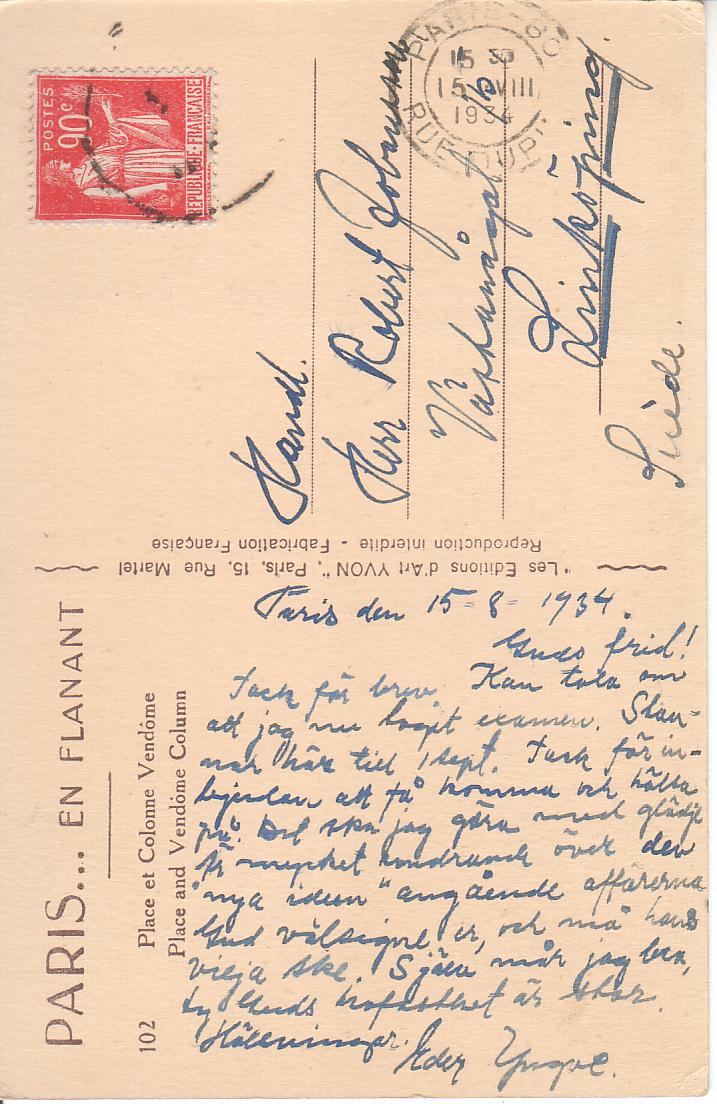 PARIS... EN FLANANT
102
Place et Colonne Vendôme
Place and Vendôme Column
"Les Editions d'Art YVON", Paris, 15, Rue Martel
Reproduction interdite - Fabrication Française
POSTES
90c
REPUBLIQUE-FRANÇAISE
15 30
15 VIII
1934
Handl.
Herr Robert
Linköping
Suède.
Paris den 15-8-1934.
Guds frid!
Tack för brev. Kan tala om
att jag nu tagit examen. Stan-
nar här till 1 sept. Tack för in-
bjudan att få komma och hälsa
på. Det ska jag göra med glädje
Är mycket undrande över den
"nya idéen" angående affärerna
Gud välsigne er, och må hans
vilja ske. Själv mår jag bra,
ty Guds trofasthet är stor.
Hälsningar.
Eder Yngve.